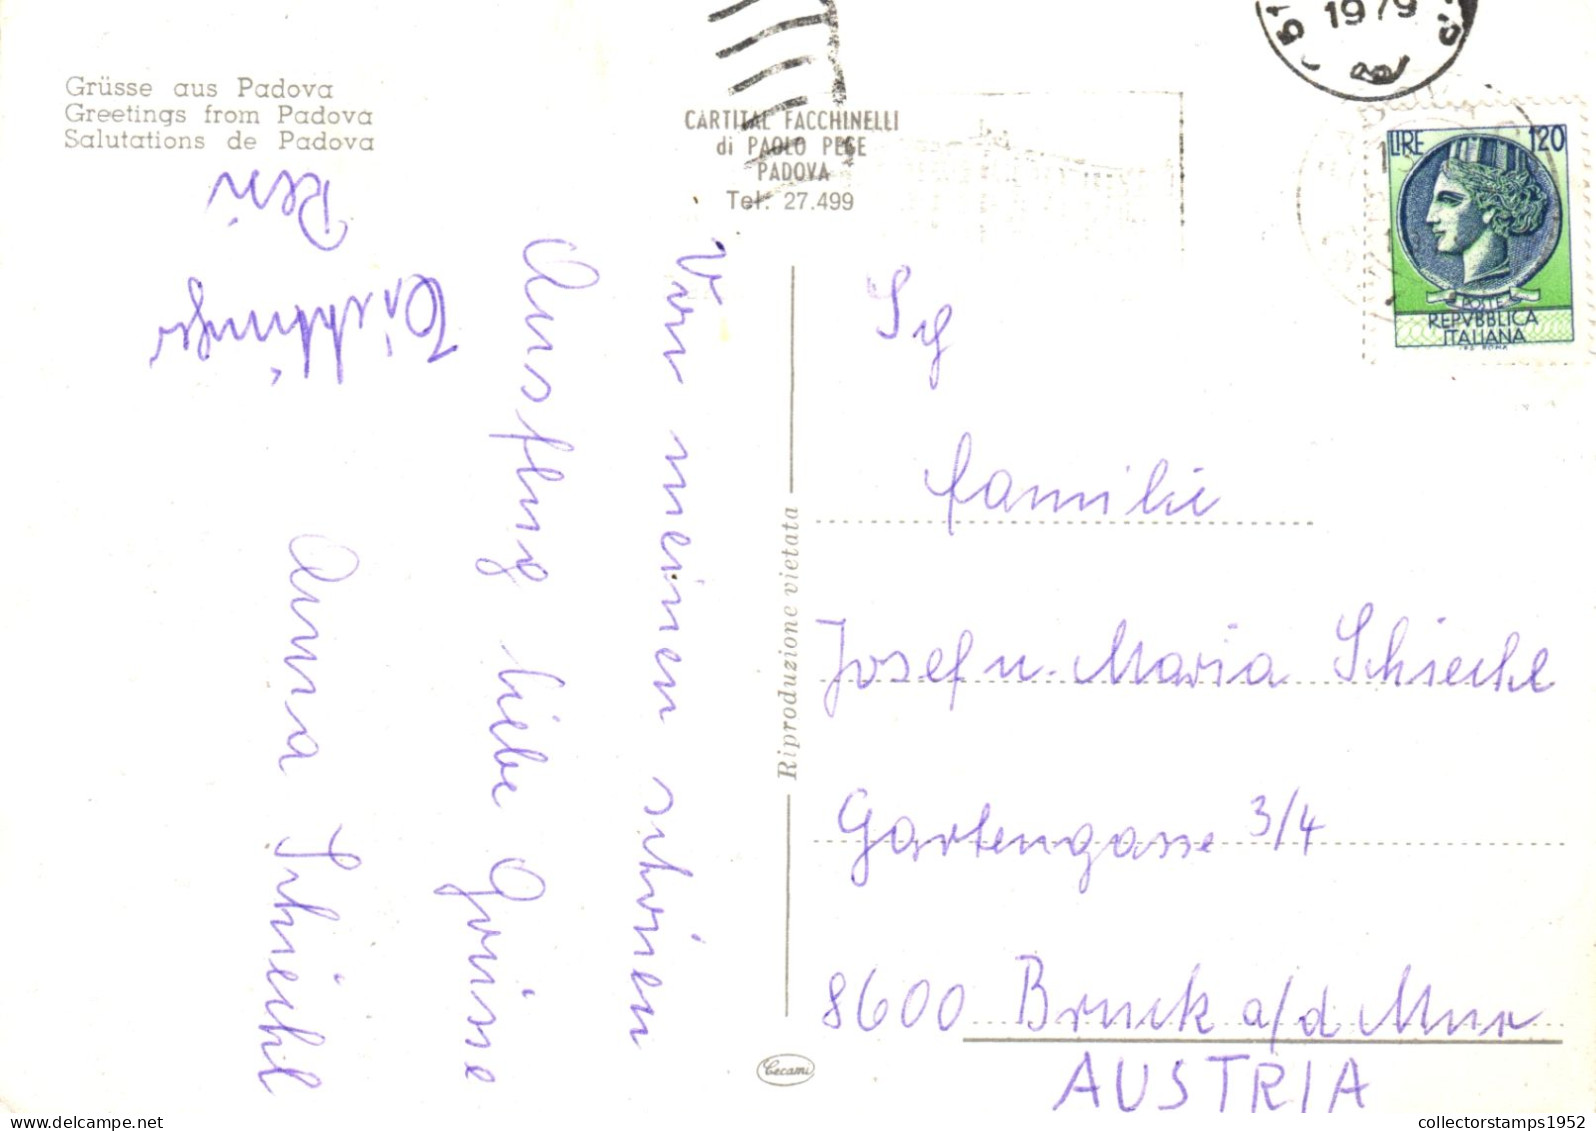 Grüsse aus Padova
Greetings from Padova
Salutations de Padova
CARTITAL FACCHINELLI
di PAOLO PEGE
PADOVA
Tel. 27.499
1979
LIRE 120
POSTE
REPVBBLICA
ITALIANA
Von meinen schönen
Ausflug liebe Grüsse
Anna Schiechl
Resi
Sg
Familie
Josef u. Maria Schiechl
Gartengasse 3/4
8600 Bruck a/d Mur
AUSTRIA
Riproduzione vietata
Cecami
collectorstamps1952